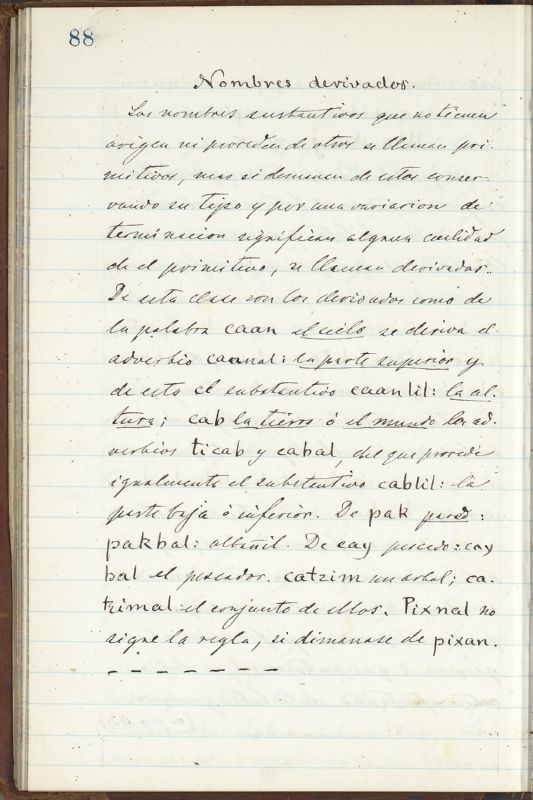 88
Nombres derivados.
Los nombres sustantivos que no tienen
origen ni proceden de otros se llaman pri-
mitivos, mas si dimanan de estos conser-
vando su tipo y por una variacion de
terminacion significan alguna cualidad
de el primitivo, se llaman derivados.
De esta clase son los derivados como de
la palabra caan el cielo se deriva el
adverbio caanal: la parte superior y
de esta el substantivo caanlil: la al-
tura; cab la tierra ó el mundo los ad-
verbios ticab y cabal, del que procede
igualmente el substantivo cablil: la
parte baja ó inferior. De pak pared:
pakbal: albañil. De cay pescado: cay
bal el pescador. catzim un arbol; ca-
tzimal el conjunto de ellos. Pixnal no
sigue la regla, si dimanase de pixan.